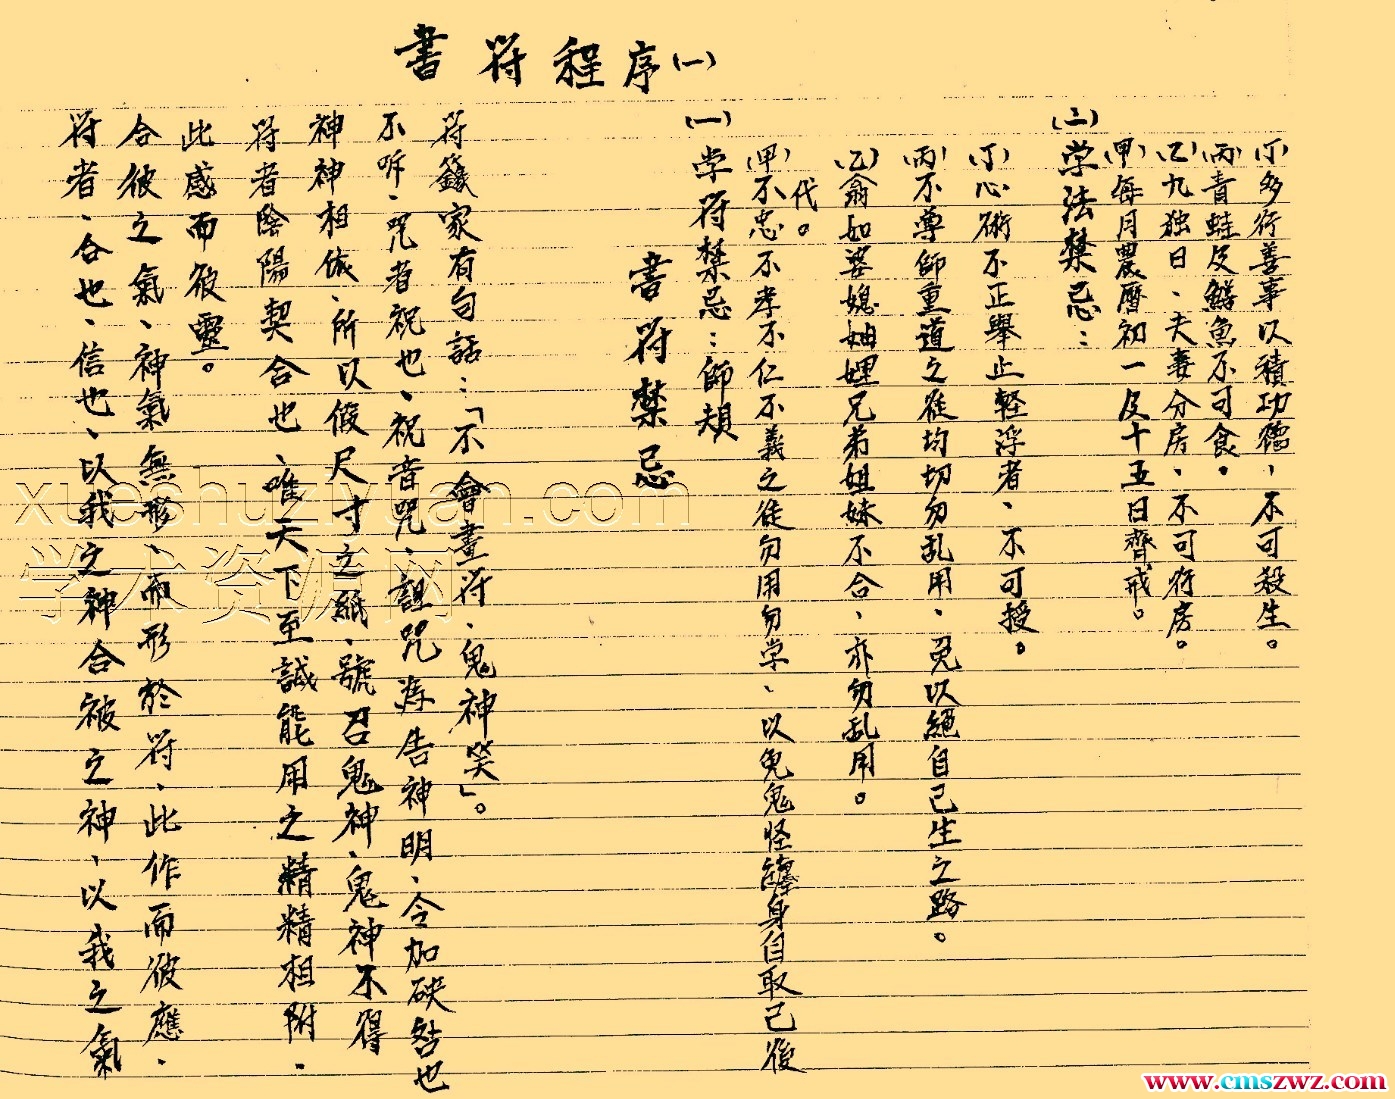 書符程序(一)
符者、合也、信也、以我之神合被之神、以我之氣
合彼之氣、神氣無形、而形於符、此作而彼應、
此感而彼靈。
符者陰陽契合也、唯天下至誠能用之精精相附、
神神相依、所以假尺寸之紙、號召鬼神、鬼神不得
不听、咒者祝也、祝音咒、詛咒為告神明、令加殃咎也
符籙家有句話:「不會畫符、鬼神笑」。
書符禁忌
(一)学符禁忌:師規
(甲)不忠不孝不仁不義之徒勿用勿学、以免鬼怪纏身自取己後
代。
(乙)翁如婆媳妯娌兄弟姐妹不合、亦勿乱用。
(丙)不尊師重道之徒均切勿乱用、免以絕自己生之路。
(丁)心術不正舉止輕浮者、不可授。
(二)学法禁忌:
(甲)每月農曆初一及十五日齊戒。
(乙)九独日、夫妻分房、不可行房。
(丙)青蛙及鱔魚不可食。
(丁)多行善事以積功德,不可殺生。
xueshuziyuan.com
学术资源网
www.cmszwz.com